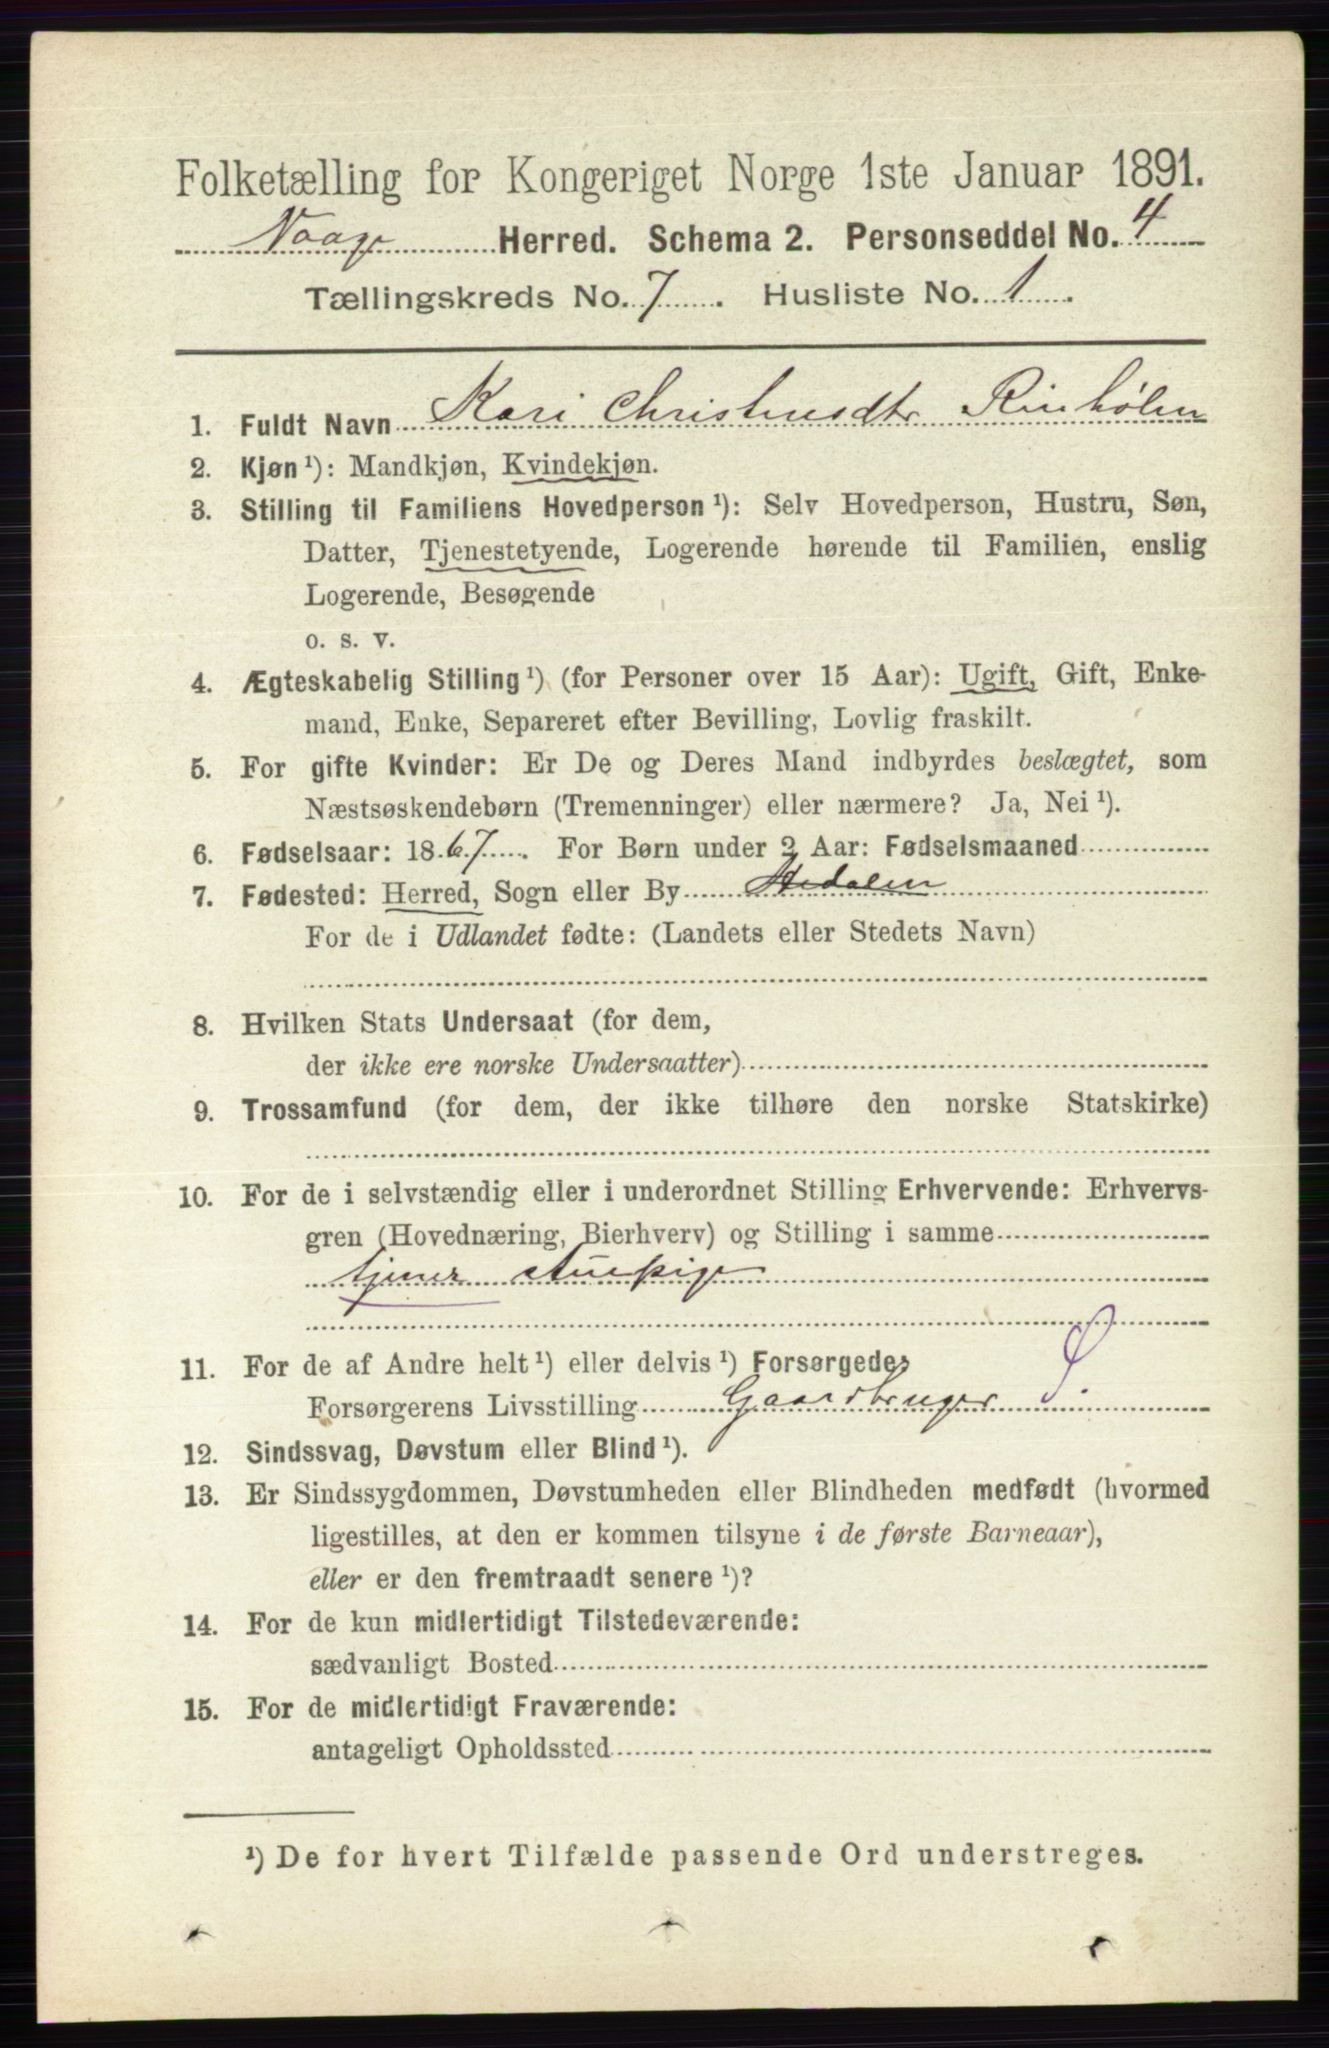 Folketælling for Kongeriget Norge 1ste Januar 1891.
Vaage Herred. Schema 2. Personseddel No. 4
Tællingskreds No. 7. Husliste No. 1.
1. Fuldt Navn Kari Christensdtr Rinhølen
2. Kjøn ¹): Mandkjøn, Kvindekjøn.
3. Stilling til Familiens Hovedperson ¹): Selv Hovedperson, Hustru, Søn,
Datter, Tjenestetyende, Logerende hørende til Familien, enslig
Logerende, Besøgende
o. s. v.
4. Ægteskabelig Stilling ¹) (for Personer over 15 Aar): Ugift, Gift, Enke-
mand, Enke, Separeret efter Bevilling, Lovlig fraskilt.
5. For gifte Kvinder: Er De og Deres Mand indbyrdes beslægtet, som
Næstsøskendebørn (Tremenninger) eller nærmere? Ja, Nei ¹).
6. Fødselsaar: 1867. For Børn under 2 Aar: Fødselsmaaned
7. Fødested: Herred, Sogn eller By Hedalen
For de i Udlandet fødte: (Landets eller Stedets Navn)
8. Hvilken Stats Undersaat (for dem,
der ikke ere norske Undersaatter)
9. Trossamfund (for dem, der ikke tilhøre den norske Statskirke)
10. For de i selvstændig eller i underordnet Stilling Erhvervende: Erhvervs-
gren (Hovednæring, Bierhverv) og Stilling i samme
tjener stuepige
11. For de af Andre helt ¹) eller delvis ¹) Forsørgede,
Forsørgerens Livsstilling Gaardbruger
12. Sindssvag, Døvstum eller Blind ¹).
13. Er Sindssygdommen, Døvstumheden eller Blindheden medfødt (hvormed
ligestilles, at den er kommen tilsyne i de første Barneaar),
eller er den fremtraadt senere ¹)?
14. For de kun midlertidigt Tilstedeværende:
sædvanligt Bosted
15. For de midlertidigt Fraværende:
antageligt Opholdssted
¹) De for hvert Tilfælde passende Ord understreges.